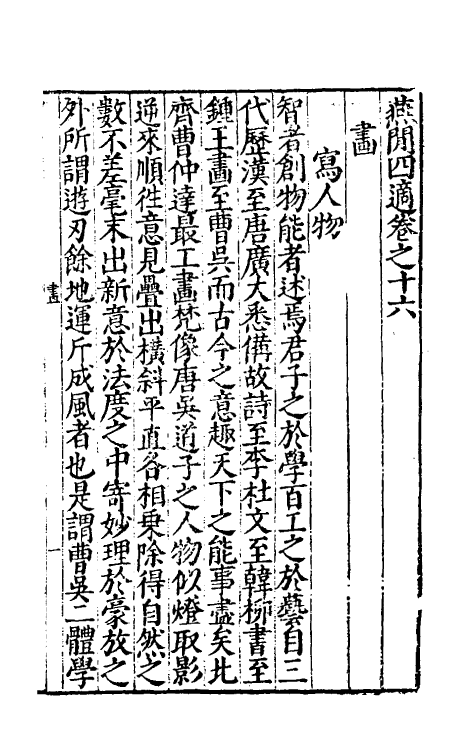 燕閒四適卷之十六
畫
寫人物
智者創物能者述焉君子之於學百工之於藝自三
代歷漢至唐廣大悉備故詩至李杜文至韓柳書至
鍾王畫至曹吳而古今之意趣天下之能事盡矣北
齊曹仲達最工畫梵像唐吳道子之人物似燈取影
逆來順徃意見疊出橫斜平直各相乗除得自然之
數不差毫末出新意於法度之中寄妙理於豪放之
外所謂遊刃餘地運斤成風者也是謂曹吳二體學
畫
一